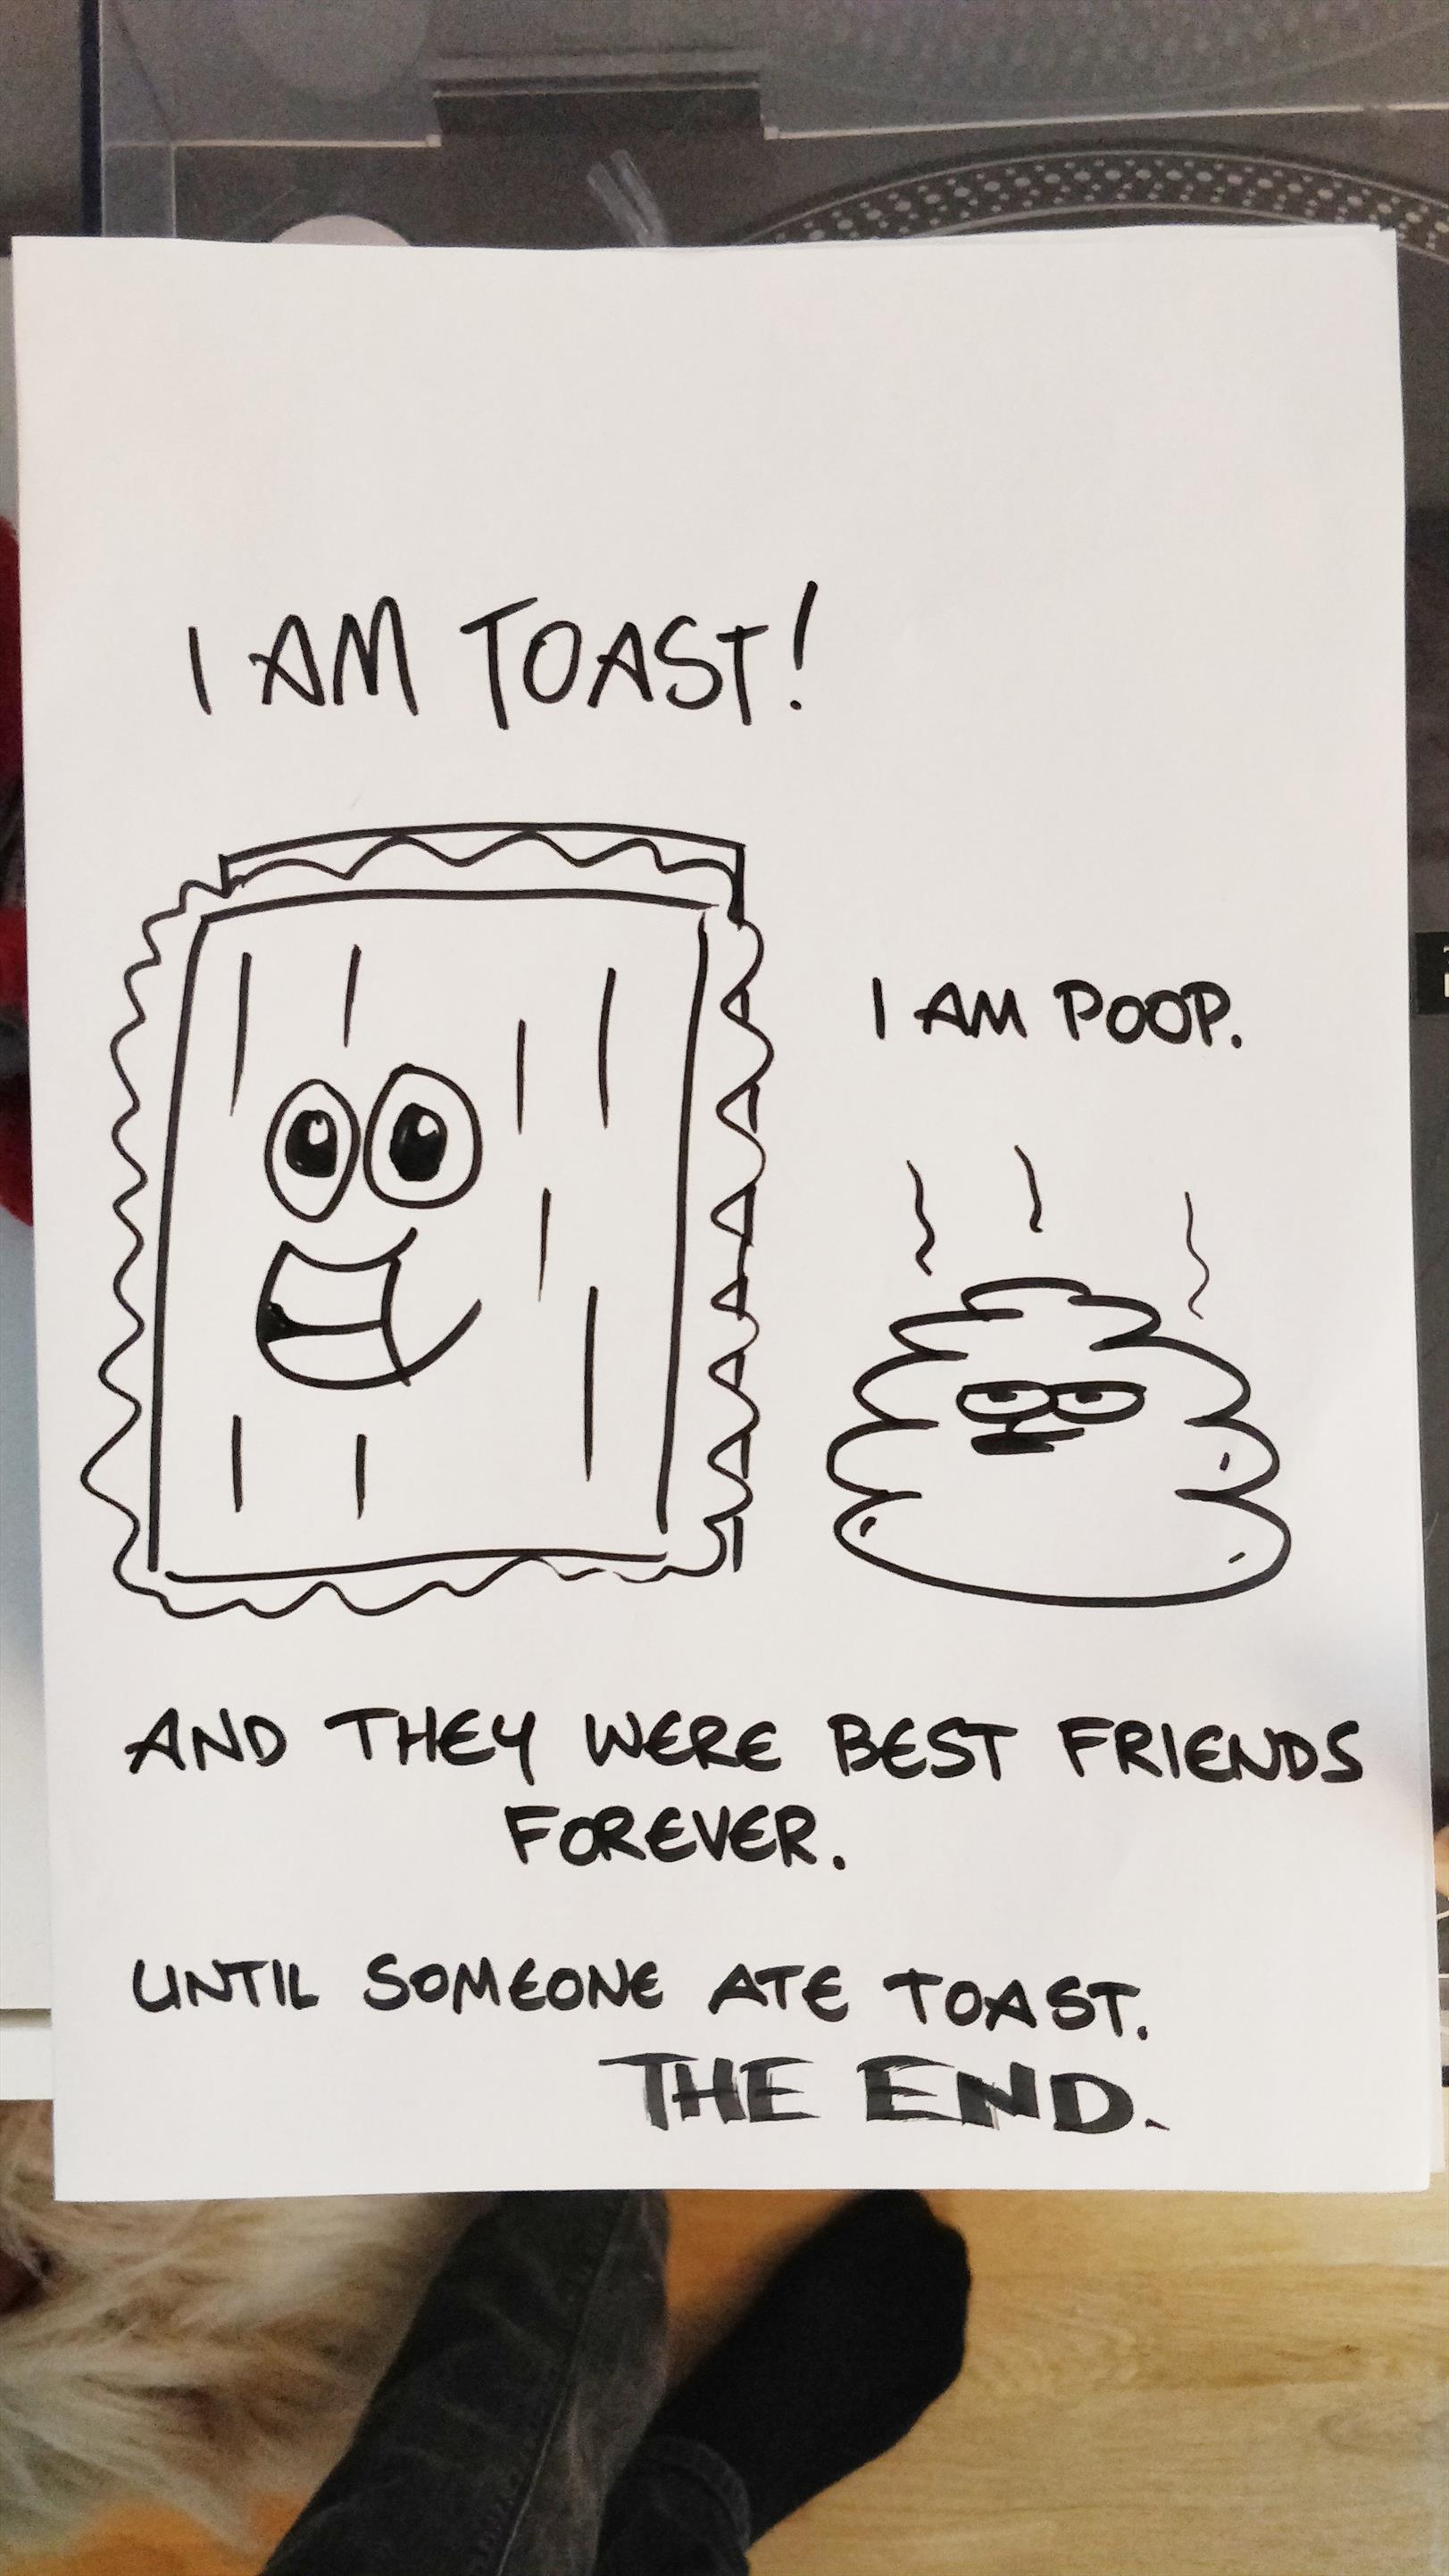 I AM TOAST!
I AM POOP.
AND THEY WERE BEST FRIENDS
FOREVER.
UNTIL SOMEONE ATE TOAST.
THE END.